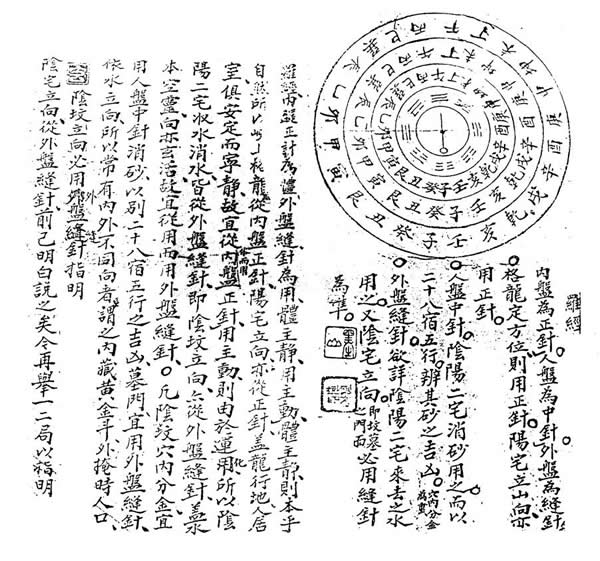 子癸丑艮寅甲卯乙辰巽巳丙午丁未坤申庚酉辛戌乾亥壬
子癸丑艮寅甲卯乙辰巽巳丙午丁未坤申庚酉辛戌乾亥壬
子癸丑艮寅甲卯乙辰巽巳丙午丁未坤申庚酉辛戌乾亥壬
羅經
內盤為正針人盤為中針外盤為縫針
格龍定方位則用正針陽宅立山向亦
用正針。
人盤中針陰陽二宅消砂用之。而以
二十八宿五行辨其砂之吉凶。穴內分金為貴
外盤縫針欲詳陰陽二宅來去之水
用之又陰宅立向即坟墓之門面必用縫針
為準。
羅經內盤正針為體外盤縫針為用體主靜用主動體主靜則本乎
自然所以格龍從內盤正針陽宅立向亦從正針蓋龍行地人居
室俱安定而寧靜故宜從內盤正針用主動則由於運用所以陰
陽二宅收水消水皆從外盤縫針即陰坟立向亦從外盤縫針蓋水
本空靈向亦玄活故宜從用而用外盤縫針。凡陰坟穴內分金宜
用人盤中針消砂以別二十八宿五行之吉凶墓門宜用外盤縫針
依水立向所以常有內外不同向者謂之內藏黃金斗外掩時人口
陰坟立向必用外盤縫針指明
陰宅立向從外盤縫針前已明白說之矣今再舉一二局以指明